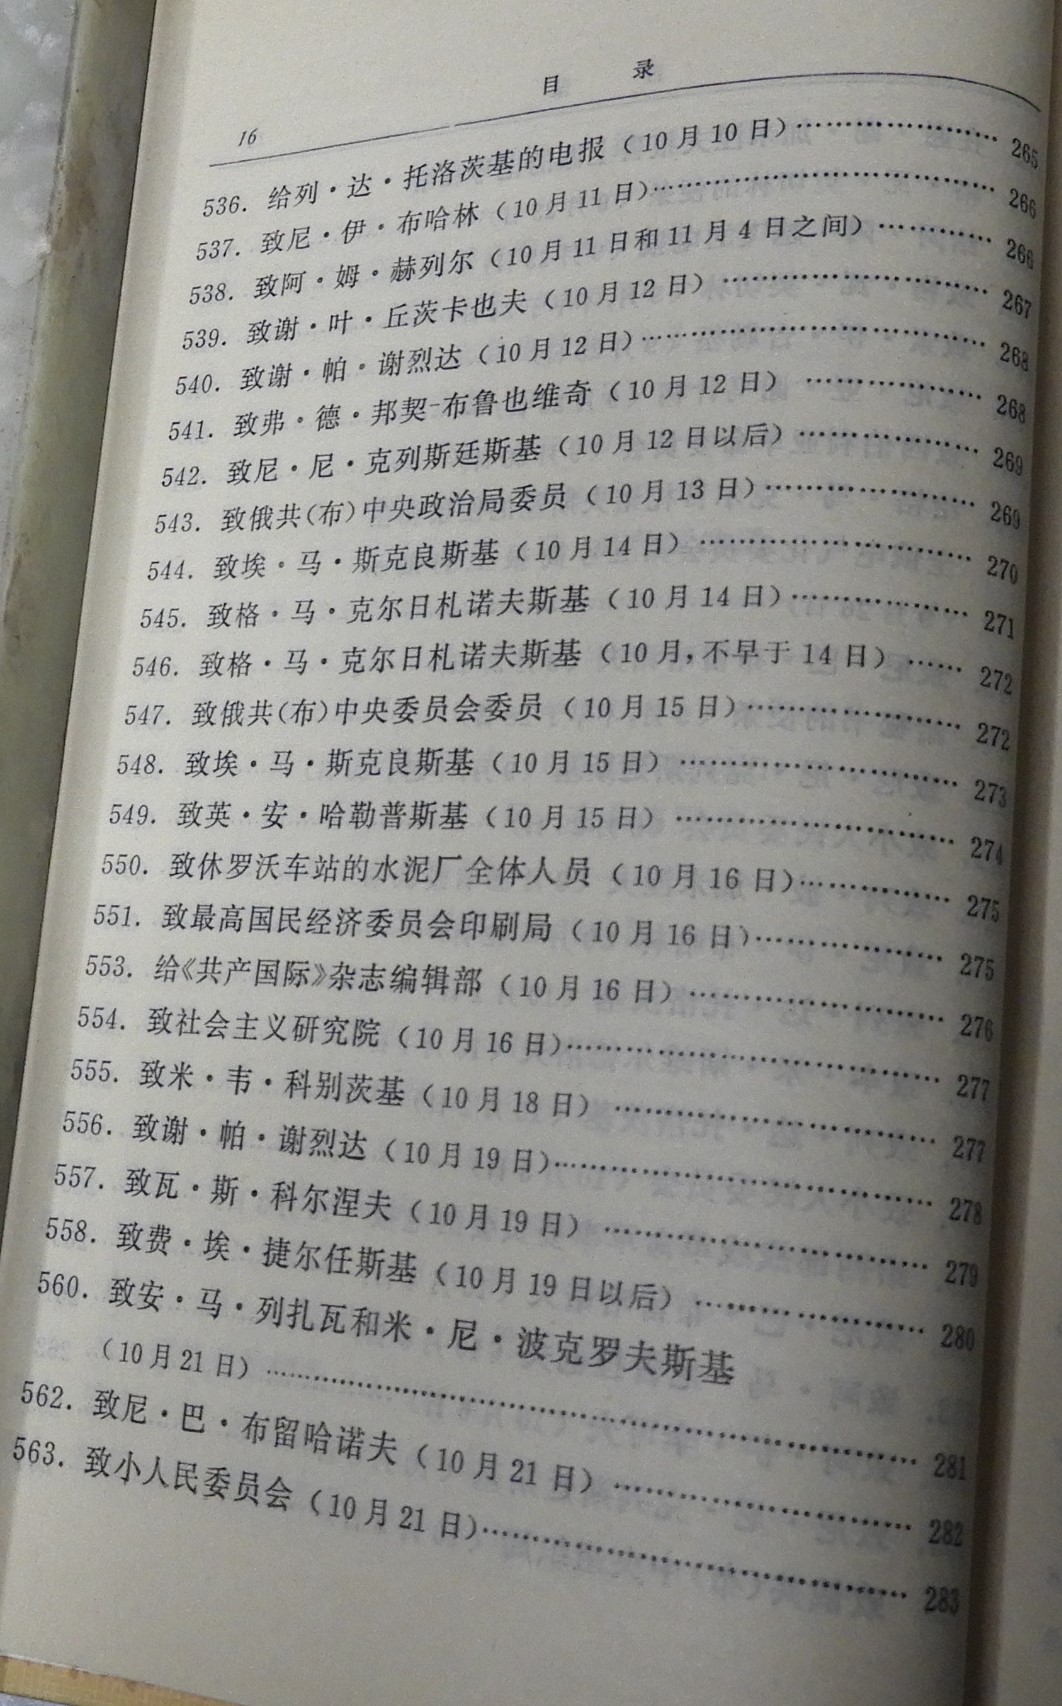 目 录
16
536. 给列·达·托洛茨基的电报（10月10日）………………… 265
537. 致尼·伊·布哈林（10月11日）…………………………… 266
538. 致阿·姆·赫列尔（10月11日和11月4日之间）………… 266
539. 致谢·叶·丘茨卡也夫（10月12日）……………………… 267
540. 致谢·帕·谢烈达（10月12日）…………………………… 268
541. 致弗·德·邦契-布鲁也维奇（10月12日）……………… 268
542. 致尼·尼·克列斯廷斯基（10月12日以后）……………… 269
543. 致俄共（布）中央政治局委员（10月13日）……………… 269
544. 致埃·马·斯克良斯基（10月14日）……………………… 270
545. 致格·马·克尔日札诺夫斯基（10月14日）……………… 271
546. 致格·马·克尔日札诺夫斯基（10月，不早于14日）…… 272
547. 致俄共（布）中央委员会委员（10月15日）……………… 272
548. 致埃·马·斯克良斯基（10月15日）……………………… 273
549. 致英·安·哈勒普斯基（10月15日）……………………… 274
550. 致休罗沃车站的水泥厂全体人员（10月16日）…………… 275
551. 致最高国民经济委员会印刷局（10月16日）……………… 275
553. 给《共产国际》杂志编辑部（10月16日）………………… 276
554. 致社会主义研究院（10月16日）…………………………… 277
555. 致米·韦·科别茨基（10月18日）………………………… 277
556. 致谢·帕·谢烈达（10月19日）…………………………… 278
557. 致瓦·斯·科尔涅夫（10月19日）………………………… 279
558. 致费·埃·捷尔任斯基（10月19日以后）………………… 280
560. 致安·马·列扎瓦和米·尼·波克罗夫斯基
（10月21日）…………………………………………………… 281
562. 致尼·巴·布留哈诺夫（10月21日）……………………… 282
563. 致小人民委员会（10月21日）……………………………… 283